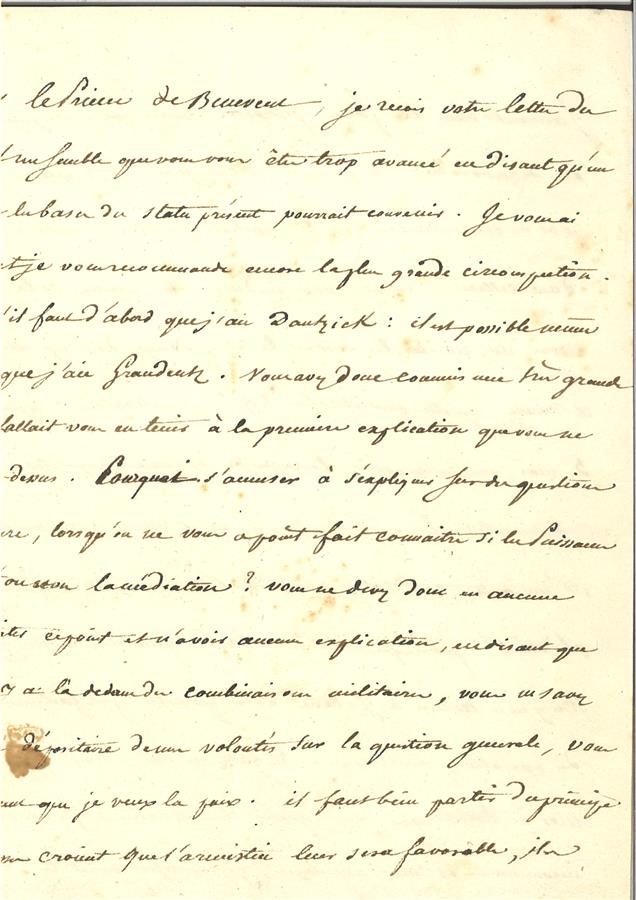 le Prince de Benevent, je reçois votre lettre du
me semble que vous vous être trop avancé en disant qu'un
la base du statu présent pourrait convenir. Je vous ai
et je vous recommande encore la plus grande circonspection.
il faut d'abord que j'aie Dantzick : il est possible même
que j'aie Graudentz. Vous avez donc commis une très grande
fallait vous en tenir à la première explication que vous ne
dessus. Pourquoi s'amuser à s'expliquer sur des questions
, lorsqu'on ne vous a point fait connaître si les Puissances
ou non la médiation ? vous ne devez donc en aucune
ce point et n'avoir aucune explication, en disant que
y a là dedans des combinaisons militaires, vous ne savez
dépositaire de mes volontés sur la question générale, vous
que je veux la paix. il faut bien partir du principe
croient que l'armistice leur sera favorable, ils